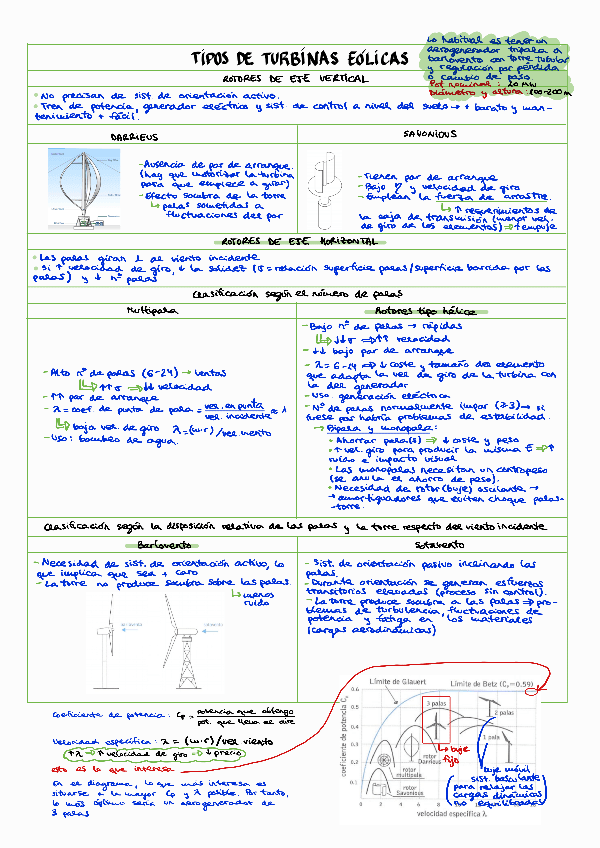 TIPOS DE TURBINAS EÓLICAS
Lo habitual es tener un
aerogenerador tripala a
barlovento con torre tubular
y regulación por pérdida
o cambio de paso.
Pot nominal: 20 MW
Diámetro y altura: 100-200 m
ROTORES DE EJE VERTICAL
• No precisan de sist de orientación activo.
• Tren de potencia, generador eléctrico y sist de control a nivel del suelo → + barato y man-
tenimiento + fácil.
DARRIEUS
- Ausencia de par de arranque.
(hay que motorizar la turbina
para que empiece a girar)
- Efecto sombra de la torre
↳ palas sometidas a
fluctuaciones del par
SAVONIOUS
- Tienen par de arranque
- Bajo η y velocidad de giro
- Emplean la fuerza de arrastre.
↳ ↑ requerimientos de
la caja de transmisión (menor vel.
de giro de los elementos) ⇒ + empuje
ROTORES DE EJE HORIZONTAL
• Las palas giran ⊥ al viento incidente
• Si ↑ velocidad de giro, ↓ la solidez (σ = relación superficie palas/superficie barrida por las
palas) y ↓ nº palas
Clasificación según el número de palas
Multipala
- Alto nº de palas (6-24) → lentas
↳ ↑↑ σ ⇒ ↓↓ velocidad
- ↑↑ par de arranque
- λ = coef. de punta de pala = vel. en punta / vel. incidente ≈ λ
↳ baja vel. de giro λ = (w·r)/vel viento
- Uso: bombeo de agua.
Rotores tipo hélice
- Bajo nº de palas → rápidas
↳ ↓↓ σ ⇒ ↑↑ velocidad
- ↓↓ bajo par de arranque
- λ = 6-14 ⇒ ↓ coste y tamaño del elemento
que adapta la vel de giro de la turbina con
la del generador
- Uso: generación eléctrica
- Nº de palas normalmente impar (2-3) → si
fuese par habría problemas de estabilidad.
→ Bipala y monopala:
• Ahorrar pala(s) ⇒ ↓ coste y peso
• ↑ vel. giro para producir la misma E ⇒ ↑
ruido e impacto visual
• Las monopalas necesitan un contrapeso
(se anula el ahorro de peso).
• Necesidad de rotor (buje) oscilante →
→ amortiguadores que eviten choque palas-
-torre.
Clasificación según la disposición relativa de las palas y la torre respecto del viento incidente
Barlovento
- Necesidad de sist. de orientación activo, lo
que implica que sea + caro
- La torre no produce sombra sobre las palas.
↳ menos
ruido
Sotavento
- Sist. de orientación pasivo inclinando las
palas.
- Durante orientación se generan esfuerzos
transitorios elevados (proceso sin control).
- La torre produce sombra a las palas ⇒ pro-
blemas de turbulencia, fluctuaciones de
potencia y fatiga en los materiales
(cargas aerodinámicas)
Coeficiente de potencia: Cp = potencia que obtengo / pot. que lleva el aire
Velocidad específica: λ = (w·r)/vel viento
↑ λ → ↑ velocidad de giro → ↓ precio
esto es lo que interesa
En el diagrama, lo que más interesa es
situarse a la mayor Cp y λ posible. Por tanto,
lo más óptimo sería un aerogenerador de
3 palas
Límite de Glauert
Límite de Betz (Cp=0.59)
coeficiente de potencia Cp
0.6
0.5
0.4
0.3
0.2
0.1
3 palas
2 palas
1 pala
rotor
Darrieus
rotor
multipala
rotor
Savonious
0 2 4 6 8
velocidad específica λ
↳ buje
fijo
buje móvil
sist. basculante
para relajar las
cargas dinámicas
no equilibradas